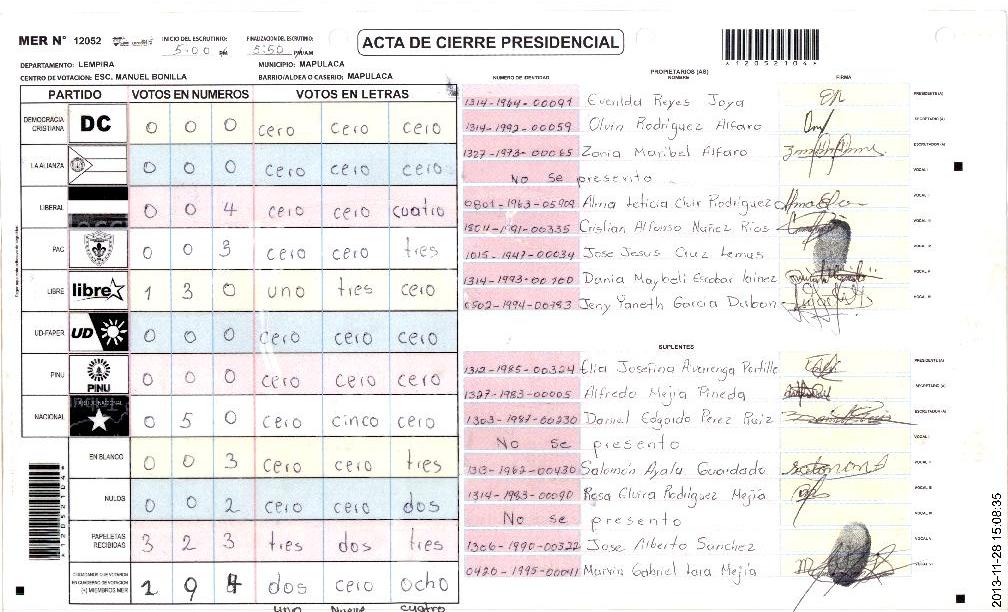 MER N° 12052
INICIO DEL ESCRUTINIO: 5:00 PM
FINALIZACION DEL ESCRUTINIO: 5:50 PM/AM
ACTA DE CIERRE PRESIDENCIAL
*12052104*
DEPARTAMENTO: LEMPIRA
MUNICIPIO: MAPULACA
CENTRO DE VOTACION: ESC. MANUEL BONILLA
BARRIO/ALDEA O CASERIO: MAPULACA
PARTIDO VOTOS EN NUMEROS VOTOS EN LETRAS
DEMOCRACIA CRISTIANA DC 0 0 0 cero cero cero
LA ALIANZA 0 0 0 cero cero cero
LIBERAL 0 0 4 cero cero cuatro
PAC 0 0 3 cero cero tres
LIBRE libre 1 3 0 uno tres cero
UD-FAPER UD 0 0 0 cero cero cero
PINU PINU 0 0 0 cero cero cero
NACIONAL 0 5 0 cero cinco cero
EN BLANCO 0 0 3 cero cero tres
NULOS 0 0 2 cero cero dos
PAPELETAS RECIBIDAS 3 2 3 tres dos tres
CIUDADANOS QUE VOTARON EN CUADERNO DE VOTACION (+) MIEMBROS MER 1 9 4 dos cero ocho
uno nueve cuatro
*12052104*
NUMERO DE IDENTIDAD
PROPIETARIOS (AS)
NOMBRE
FIRMA
1314-1964-00091 Evarilda Reyes Joya PRESIDENTE(A)
1314-1992-00059 Olvin Rodriguez Alfaro SECRETARIO(A)
1327-1973-00065 Zonia Maribel Alfaro ESCRUTADOR(A)
No Se presento VOCAL I
0801-1963-05909 Alma Leticia Rodriguez
Cristian Alfonso Nuñez Rios
1015-1947-00034 Jose Jesus Cruz Lemus
1314-1993-00100 Dania Maybeli Escobar
0502-1994-00783 Jeny Yaneth Garcia Dubon
SUPLENTES
1312-1985-00324 Elia Josefina Portillo PRESIDENTE(A)
1327-1983-00005 Alfredo Mejia Pineda SECRETARIO(A)
1303-1987-00230 Daniel Edgardo Perez Ruiz ESCRUTADOR(A)
No Se presento VOCAL I
1313-1962-00430 Salomón Ayala Guardado
1314-1983-00090 Rosa Elvira Rodriguez Mejia
No Se presento
1306-1990-00322 Jose Alberto Sanchez
0420-1995-00011 Marvin Gabriel Lara Mejía
2013-11-28 15:08:35